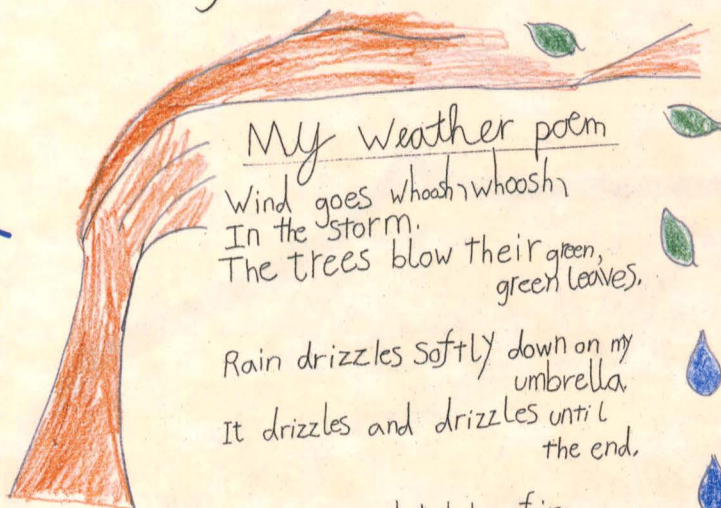 My Weather poem
Wind goes whoosh, whoosh,
In the storm.
The trees blow their green,
green leaves.
Rain drizzles softly down on my
umbrella.
It drizzles and drizzles until
the end.